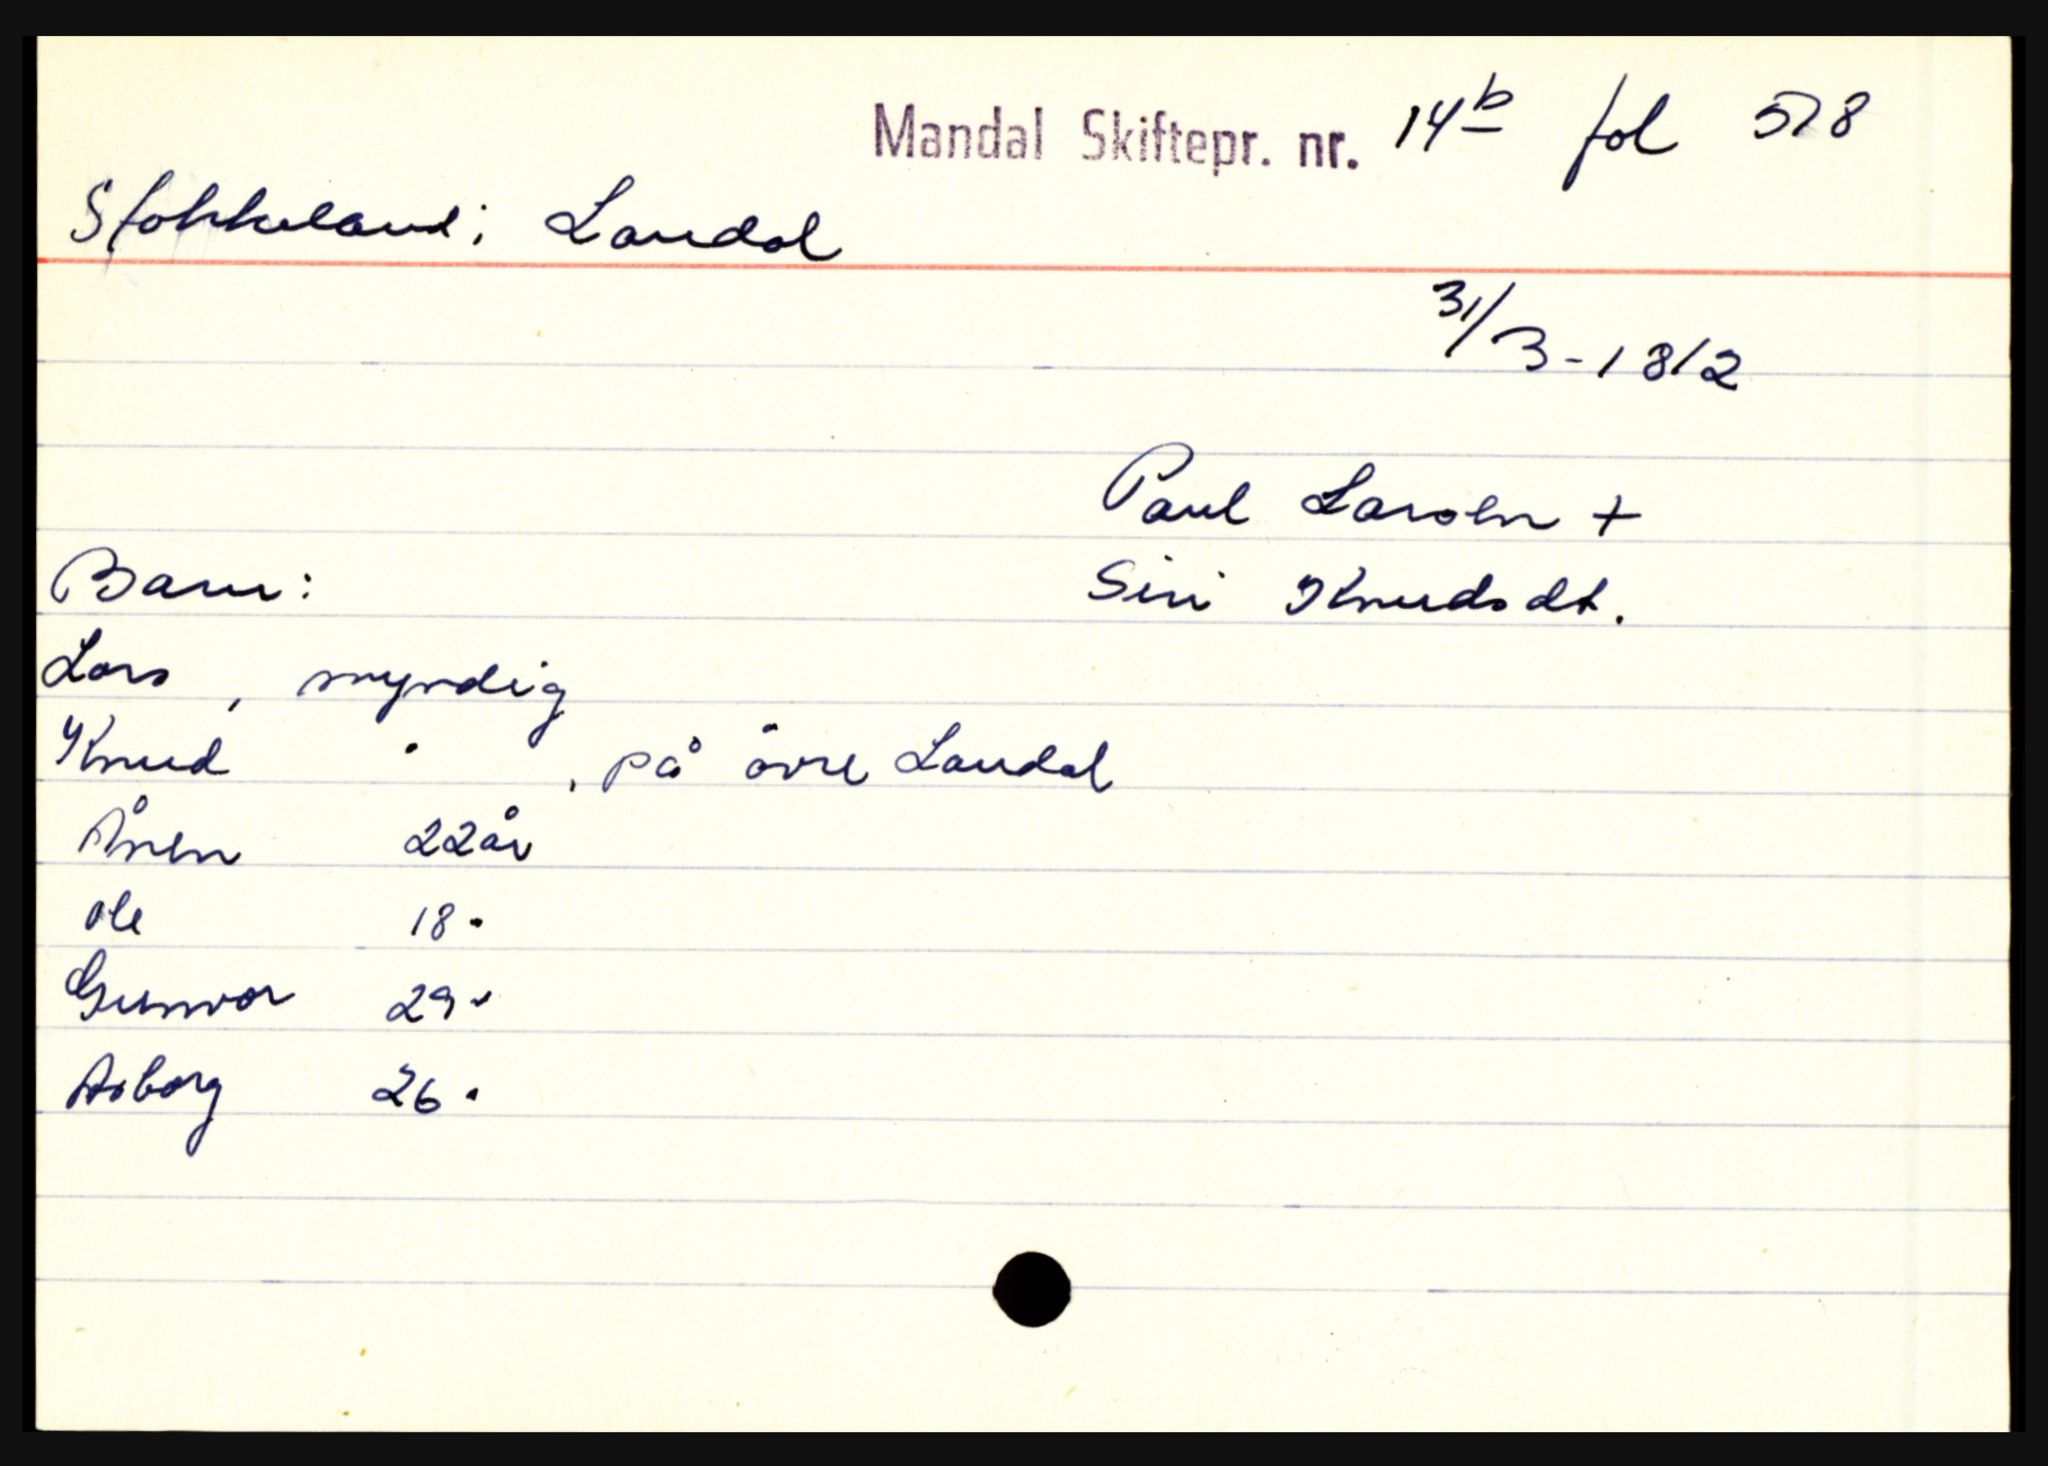 Mandal Skiftepr. nr. 14b fol 578
Stokkeland i Laudal
31/3-1812
Paul Larsen +
Barn: Siri Knudsdt.
Lars, myndig
Knud " , på övre Laudal
Ånen 22 år
Ole 18 "
Gunvor 29 "
Asborg 26 "